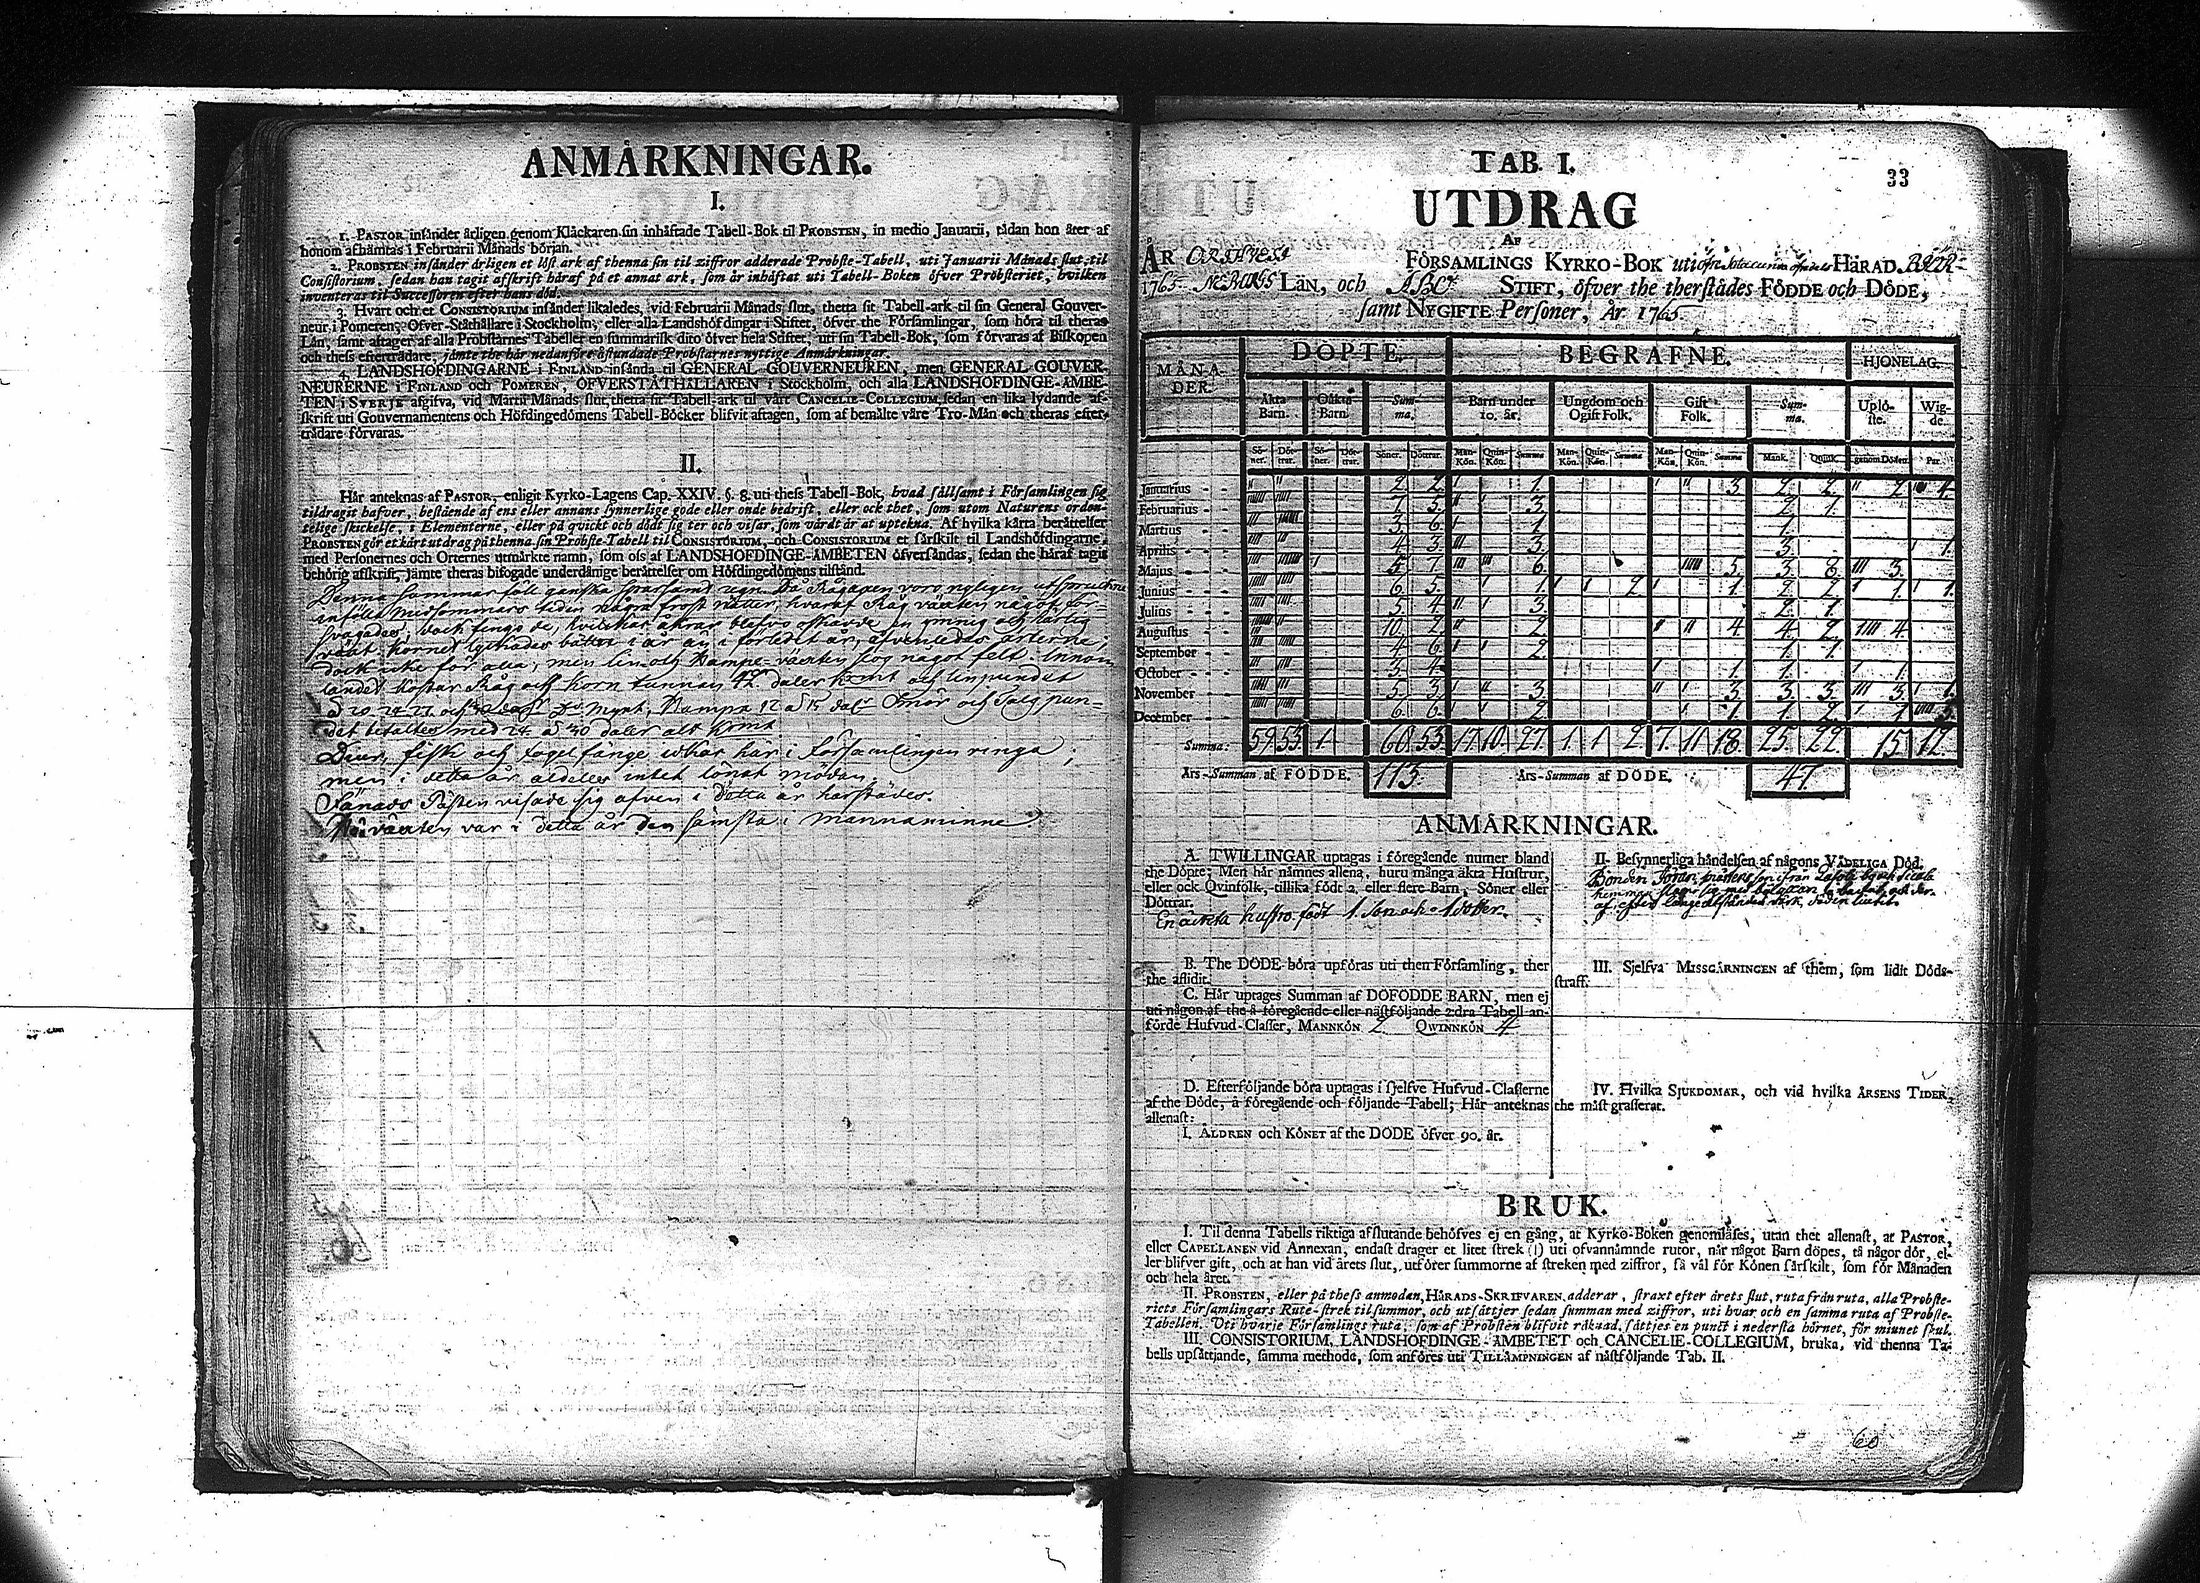 ANMÄRKNINGAR.
I.
1. PASTOR insänder årligen genom Klåckaren sin inhäftade Tabell-Bok til PROBSTEN, in medio Januarii, tådan hon åter af
honom afhämtas i Februarii Månads början.
2. PROBSTEN insänder årligen et löst ark af thenna sin til ziffror adderade Probste-Tabell, uti Januarii Månads slut, til
Consistorium, sedan han tagit afskrift häraf på et annat ark, som är inhäftat uti Tabell-Boken öfver Probsteriet, hvilken
inventeras til Successoren efter hans död.
3. Hvart och et CONSISTORIUM insänder likaledes, vid Februarii Månads slut, thetta sit Tabell-ark til sin General Gouver-
neur i Pomeren, Öfver-Ståthållare i Stockholm, eller alla Landshöfdingar i Stiftet, öfver the Församlingar, som höra til theras
Län, samt aftager af alla Probstarnes Tabeller en summarisk dito öfver hela Stiftet, uti sin Tabell-Bok, som förvaras af Biskopen
och thess efterträdare, jämte the här nedanföre åstundade Probstarnes nyttige Anmärkningar.
4. LANDSHÖFDINGARNE i FINLAND insända til GENERAL-GOUVERNEUREN, men GENERAL-GOUVER-
NEURERNE i FINLAND och POMEREN, ÖFVERSTÅTHÅLLAREN i Stockholm, och alla LANDSHÖFDINGE-ÄMBE-
TEN i SVERJE afgifva, vid Martii Månads slut, thetta sit Tabell-ark til vårt CANCELIE-COLLEGIUM, sedan en lika lydande af-
skrift uti Gouvernamentens och Höfdingedömens Tabell-Böcker blifvit aftagen, som af bemälte våre Tro-Män och theras efter-
trädare förvaras.
II.
Här anteknas af PASTOR, enligit Kyrko-Lagens Cap. XXIV. §. 8. uti thess Tabell-Bok, hvad sällsamt i Församlingen sig
tildragit hafver, bestående af ens eller annans synnerlige gode eller onde bedrift, eller ock thet, som utom Naturens orden-
telige skickelse, i Elementerne, eller på qvickt och dödt sig ter och visar, som värdt är at uptekna. Af hvilka kårta berättelser
PROBSTEN gör et kårt utdrag på thenna sin Probste-Tabell til CONSISTORIUM, och CONSISTORIUM et särskilt til Landshöfdingarne,
med Personernes och Orternes utmärkte namn, som oss af LANDSHÖFDINGE-ÄMBETEN öfversändas, sedan the häraf tagit
behörig afskrift, jämte theras bifogade underdånige berättelser om Höfdingedömens tilstånd.
Denna sommar föll ganska sparsamt regn. Då Rågaxen voro nyligen utspruckne
infölle midsommars tiden några frost nätter, hvaraf Råg växten något för-
svagades, dock fingo de, hvilkas åkrar blefvo ymnig och härlig
växt, kornet lyckades bättre i år än i förledit år, äfvenledes ärterna;
dock icke för alla; men lin och Hampe-växten slog något felt. Innom
landet kostar Råg och Korn tunnan 42 daler kpmt och linpundet
Hampa 12 a 15 dal. Smör och Talg pun-
det betaltes med 24 a 30 daler alt kpmt.
Diur, fisk och fogel fänge idkas här i församlingen ringa;
men i detta år aldeles intet lönat mödan.
Fänads Pästen visade sig äfven i detta år härstädes.
Höväxten var i detta år den sämsta i mannaminne.
TAB. I.
33
UTDRAG
AF
ÅR FÖRSAMLINGS KYRKO-BOK uti HÄRAD BIÖR-
1765 NEBORGS LÄN, och ÅBO STIFT, öfver the therstädes FÖDDE och DÖDE,
samt NYGIFTE Personer, År 1765.
MÅNA- DER. DÖPTE. BEGRAFNE. HJONELAG.
Äkta Barn. Oäkta Barn. Sum- ma. Barn under 10. år. Ungdom och Ogift Folk. Gift Folk. Sum- ma. Uplö- ste. Wig- de.
Sö- ner. Döt- trar. Sö- ner. Döt- trar. Söner. Döttrar. Man- Kön. Quin- Kön. Summa Man- Kön. Quin- Kön. Summa Man- Kön. Quin- Kön. Summa Mank. Quink. genom Döden Par.
Januarius 2 2 1 3 2 2 2 4
Februarius 7 5 3 2 1
Martius 3 6 1 1
Aprilis 4 3 3 3 1
Majus 5 7 6 5 3 8 3
Junius 6 5 1 2 1 2 2 1 1
Julius 5 4 3 2 1
Augustus 10 2 2 4 4 2 4
September 4 6 2 1 1
October 3 4 1 1 1
November 5 3 3 3 3 3 3 1
December 6 6 2 1 1 2 1 5
Summa: 59 53 1 60 53 17 10 27 1 1 2 7 11 18 25 22 15 12
Års-Summan af FÖDDE. 113. Års-Summan af DÖDE. 47.
ANMÄRKNINGAR.
A. TWILLINGAR uptagas i föregående numer bland
the Döpte; Men här nämnes allena, huru många äkta Hustrur,
eller ock Qvinfolk, tillika födt 2, eller flere Barn, Söner eller
Döttrar.
En äkta hustro födt 1. son och 1 dotter.
B. The DÖDE böra upföras uti then Församling, ther
the aflidit.
C. Här uptages Summan af DÖFÖDDE BARN, men ej
uti någon af the å föregående eller nästföljande 2:dra Tabell an-
förde Hufvud-Classer, MANNKÖN 2 QWINNKÖN 4
D. Efterföljande böra uptagas i sjelfve Hufvud-Classerne
af the Döde, å föregående och följande Tabell; Här anteknas
allenast:
I. ÅLDREN och KÖNET af the DÖDE öfver 90. år.
II. Besynnerliga händelsen af någons VÅDELIGA Död.
Bonden Jöran
III. Sjelfva MISSGÄRNINGEN af them, som lidit Döds-
straff.
IV. Hvilka SJUKDOMAR, och vid hvilka ÅRSENS TIDER,
the mäst grasserat.
BRUK.
I. Til denna Tabells riktiga afslutande behöfves ej en gång, at Kyrko-Boken genomläses, utan thet allenast, at PASTOR,
eller CAPELLANEN vid Annexan, endast drager et litet strek (1) uti ofvannämnde rutor, när något Barn döpes, tå någor dör, el-
ler blifver gift, och at han vid årets slut, utförer summorne af streken med ziffror, så väl för Könen särskilt, som för Månaden
och hela året.
II. PROBSTEN, eller på thess anmodan, HÄRADS-SKRIFVAREN, adderar, straxt efter årets slut, ruta från ruta, alla Probste-
riets Församlingars Rute-strek til summor, och utsättjer sedan summan med ziffror, uti hvar och en samma ruta af Probste-
Tabellen. Uti hvarje Församlings ruta, som af Probsten blifvit räknad, sättjes en punct i nedersta hörnet, för minnet skul.
III. CONSISTORIUM, LANDSHÖFDINGE-ÄMBETET och CANCELIE-COLLEGIUM, bruka, vid thenna Ta-
bells upsättjande, samma methode, som anföres uti TILLÄMPNINGEN af nästföljande Tab. II.
60